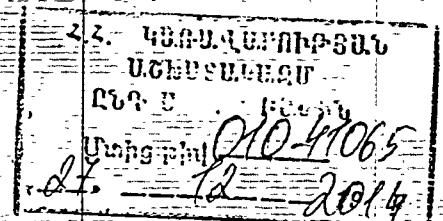 Հ.Հ. ԿԱՌԱՎԱՐՈՒԹՅԱՆ
ԱՇԽԱՏԱԿԱԶՄ
ԸՆԴ
Մտից թիվ 010-41065
27. 12 2014